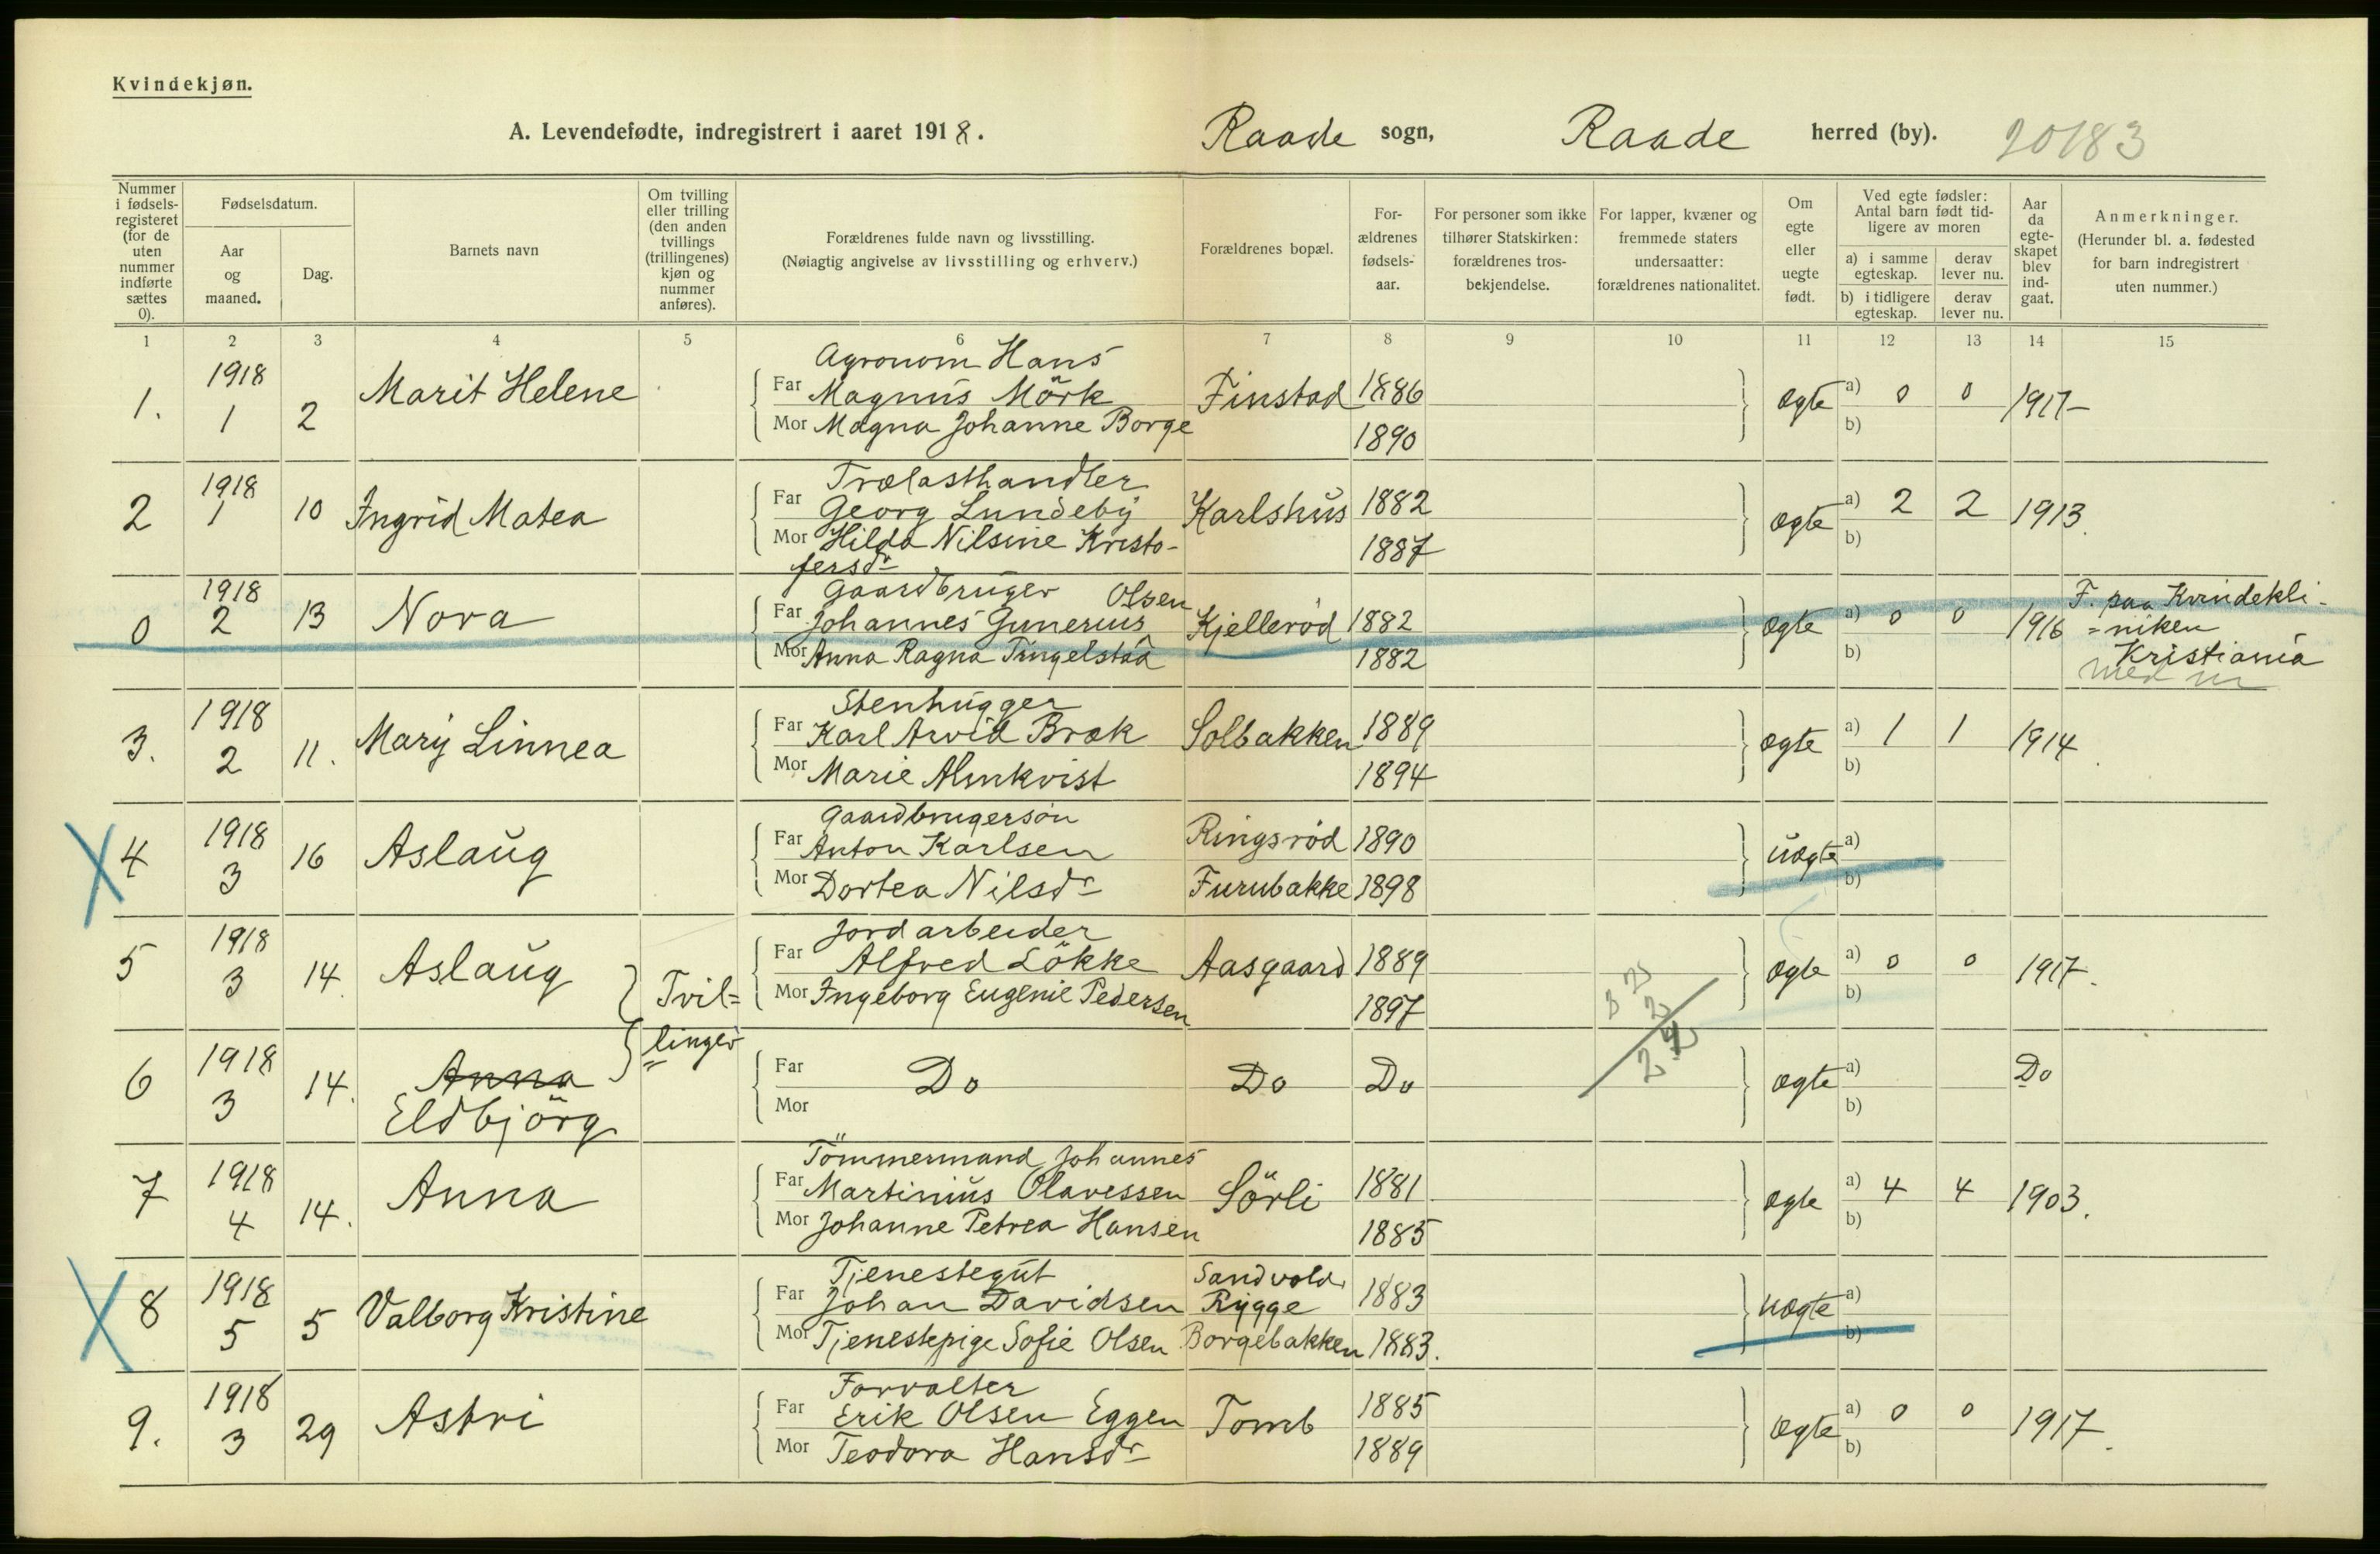 Kvindekjøn.
A. Levendefødte, indregistrert i aaret 1918. Raade sogn, Raade herred (by). 20183
Nummer i fødsels-registeret (for de uten nummer indførte sættes 0).
Fødselsdatum.
Aar og maaned.
Dag.
Barnets navn
Om tvilling eller trilling (den anden tvillings (trillingenes) kjøn og nummer anføres).
Forældrenes fulde navn og livsstilling.
(Nøiagtig angivelse av livsstilling og erhverv.)
Forældrenes bopæl.
For-ældrenes fødsels-aar.
For personer som ikke tilhører Statskirken: forældrenes tros-bekjendelse.
For lapper, kvæner og fremmede staters undersaatter: forældrenes nationalitet.
Om egte eller uegte født.
Ved egte fødsler: Antal barn født tid-ligere av moren
a) i samme egteskap. derav lever nu.
b) i tidligere egteskap. derav lever nu.
Aar da egte-skapet blev ind-gaat.
Anmerkninger.
(Herunder bl. a. fødested for barn indregistrert uten nummer.)
1 2 3 4 5 6 7 8 9 10 11 12 13 14 15
1. 1918 1 2 Marit Helene
Agronom Hans
Far Magnus Mörk Finstad 1886 ægte a) 0 0 1917
Mor Magna Johanne Borge 1890 b)
2 1918 1 10 Ingrid Matea
Trælasthandler
Far Georg Lundeby Karlshus 1882 ægte a) 2 2 1913
Mor Hilda Nilsine Kristo-
fersdr 1887 b)
0 1918 2 13 Nova
Gaardbruger Olsen
Far Johannes Gunerius Kjellerød 1882 ægte a) 0 0 1916
Mor Anna Ragna Tingelstad 1882 b)
F. paa Kvindekli-
=niken
Kristiania
3. 1918 2 11. Mary Linnea
Stenhugger
Far Karl Arvid Bræk Solbakken 1889 ægte a) 1 1 1914
Mor Marie Almkvist 1894 b)
4 1918 3 16 Aslaug
Gaardbrugersøn
Far Anton Karlsen Ringsrød 1890 uægte a)
Mor Dortea Nilsdr Furubakke 1898 b)
5 1918 3 14 Aslaug Tvil=
Jordarbeider
Far Alfred Lökke Aasgaard 1889 ægte a) 0 0 1917.
Mor Ingeborg Eugenie Pedersen 1897 b)
linger
6 1918 3 14. Anna
Eldbjörg
Far Do Do Do ægte a) Do
Mor b)
7 1918 4 14. Anna
Tömmermand Johannes
Far Martinius Olavessen Sörli 1881 ægte a) 4 4 1903.
Mor Johanne Petrea Hansen 1885 b)
8 1918 5 5 Valborg Kristine
Tjenestegut Sandvold
Far Johan Davidsen Rygge 1883 uægte a)
Mor Tjenestepige Sofie Olsen Borgebakken 1883. b)
9. 1918 3 29 Astri
Forvalter
Far Erik Olsen Eggen Tomb 1885 ægte a) 0 0 1917.
Mor Teodora Hansdr 1889 b)